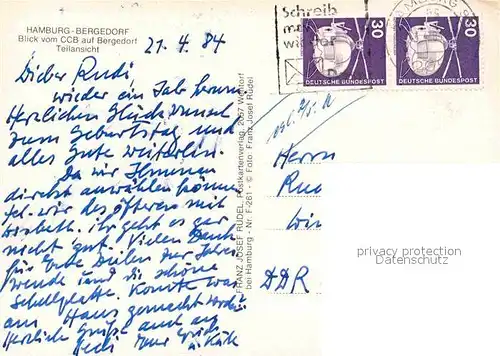 HAMBURG-BERGEDORF
Blick vom CCB auf Bergedorf
Teilansicht
21.4.84
Schreib
mal
wieder
30
30
DEUTSCHE BUNDESPOST
DEUTSCHE BUNDESPOST
Lieber Rudi,
wieder ein Jahr herum
Herzlichen Glückwunsch
zum Geburtstag und
alles Gute weiterhin.
Da wir Ilmenau
direkt anwählen können
tel. wir des öfteren mit
ihr geht es gar
nicht gut. Vielen Dank
für Gute Zeilen zur Jahres
wende und die schöne
Schallplatte. Konnte was
am Haus gemacht werden
Herzliche Grüße auch an
Hedi Eure
u. Käte
FRANZ JOSEF RÜDEL, Postkartenverlag, 2057 Wentorf
bei Hamburg - Nr. F-261 - © Foto: Franz Josef Rüdel
Herrn
DDR
privacy protection
www.ansichtskarten-center.de